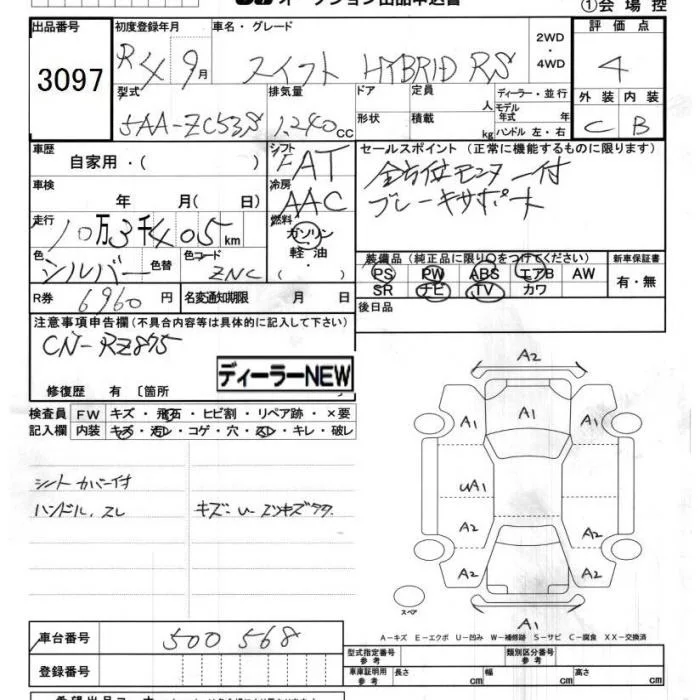 オークション出品申込書
①会場控
出品番号
3097
初度登録年月
R4 9月
車名・グレード
スイフト HYBRID RS
2WD
・
4WD
評価点
4
外装 内装
C B
型式
5AA-ZC53S
排気量
1,240 CC
ドア
形状
定員
人
積載
kg
ディーラー・並行
モデル年式 年
ハンドル 左・右
車歴
自家用・( )
シフト
FAT
セールスポイント (正常に機能するものに限ります)
全方位モニター付
ブレーキサポート
車検
年 月( 日)
冷房
AAC
走行
10万3千405km
燃料
ガソリン
軽油
・
( )
色
シルバー
色替
色コード
ZNC
装備品 (純正品に限り○をつけてください)
PS PW ABS エアB AW
SR ナビ TV カワ
新車保証書
有・無
R券 6960円
名変通知期限 月 日
後日品
注意事項申告欄(不具合内容等は具体的に記入して下さい)
CN-RZ875
ディーラーNEW
修復歴 有 〔箇所
検査員記入欄
FW キズ・飛石・ヒビ割・リペア跡・×要
内装 キズ・汚レ・コゲ・穴・スレ・キレ・破レ
シートカバー付
ハンドル、スレ
キズ:U-
A2
A1
A1
A1
UA1
A2
A2
A2
A2
A1
スペア
A-キズ E-エクボ U-凹み W-補修跡 S-サビ C-腐食 XX-交換済
車台番号
500568
登録番号
型式指定番号参考
類別区分番号参考
車庫証明用参考
長さ cm
幅 cm
高さ cm